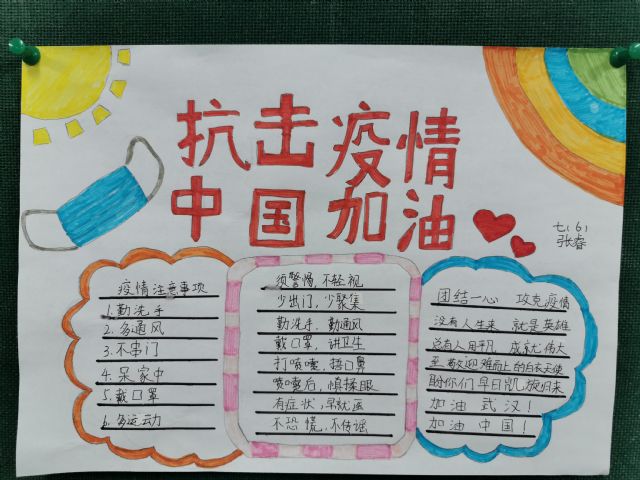 抗击疫情
中国加油
七(6)
张睿
疫情注意事项
1.勤洗手
2.多通风
3.不串门
4.呆家中
5.戴口罩
6.多运动
须警惕,不轻视
少出门,少聚集
勤洗手,勤通风
戴口罩,讲卫生
打喷嚏,捂口鼻
喷嚏后,慎揉眼
有症状,早就医
不恐慌,不传谣
团结一心 攻克疫情
没有人生来 就是英雄
总有人用平凡 成就伟大
至敬迎难而上的白衣天使
盼你们早日凯旋归来
加油 武汉!
加油 中国!